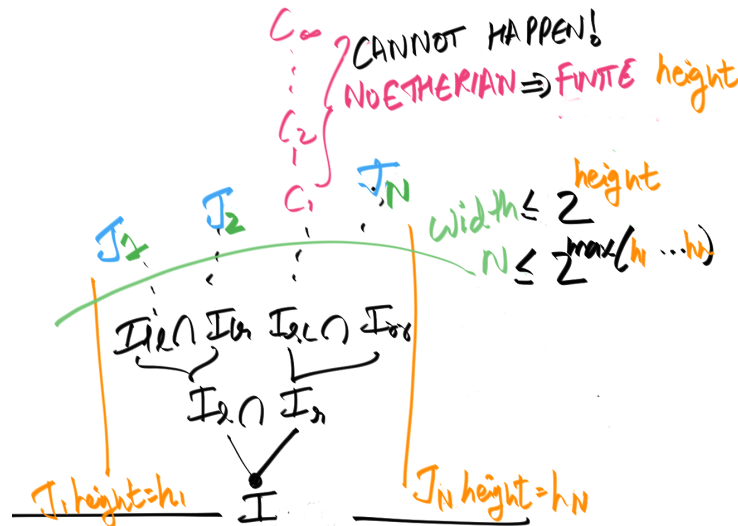 C∞
CANNOT HAPPEN!
NOETHERIAN ⇒ FINITE height
C2
C1
J1 J2 JN
width ≤ 2^height
N ≤ 2^max(h1 ... hn)
Ill ∩ Ilr Irl ∩ Irr
Il ∩ Ir
I
J1 height=h1
JN height=hN